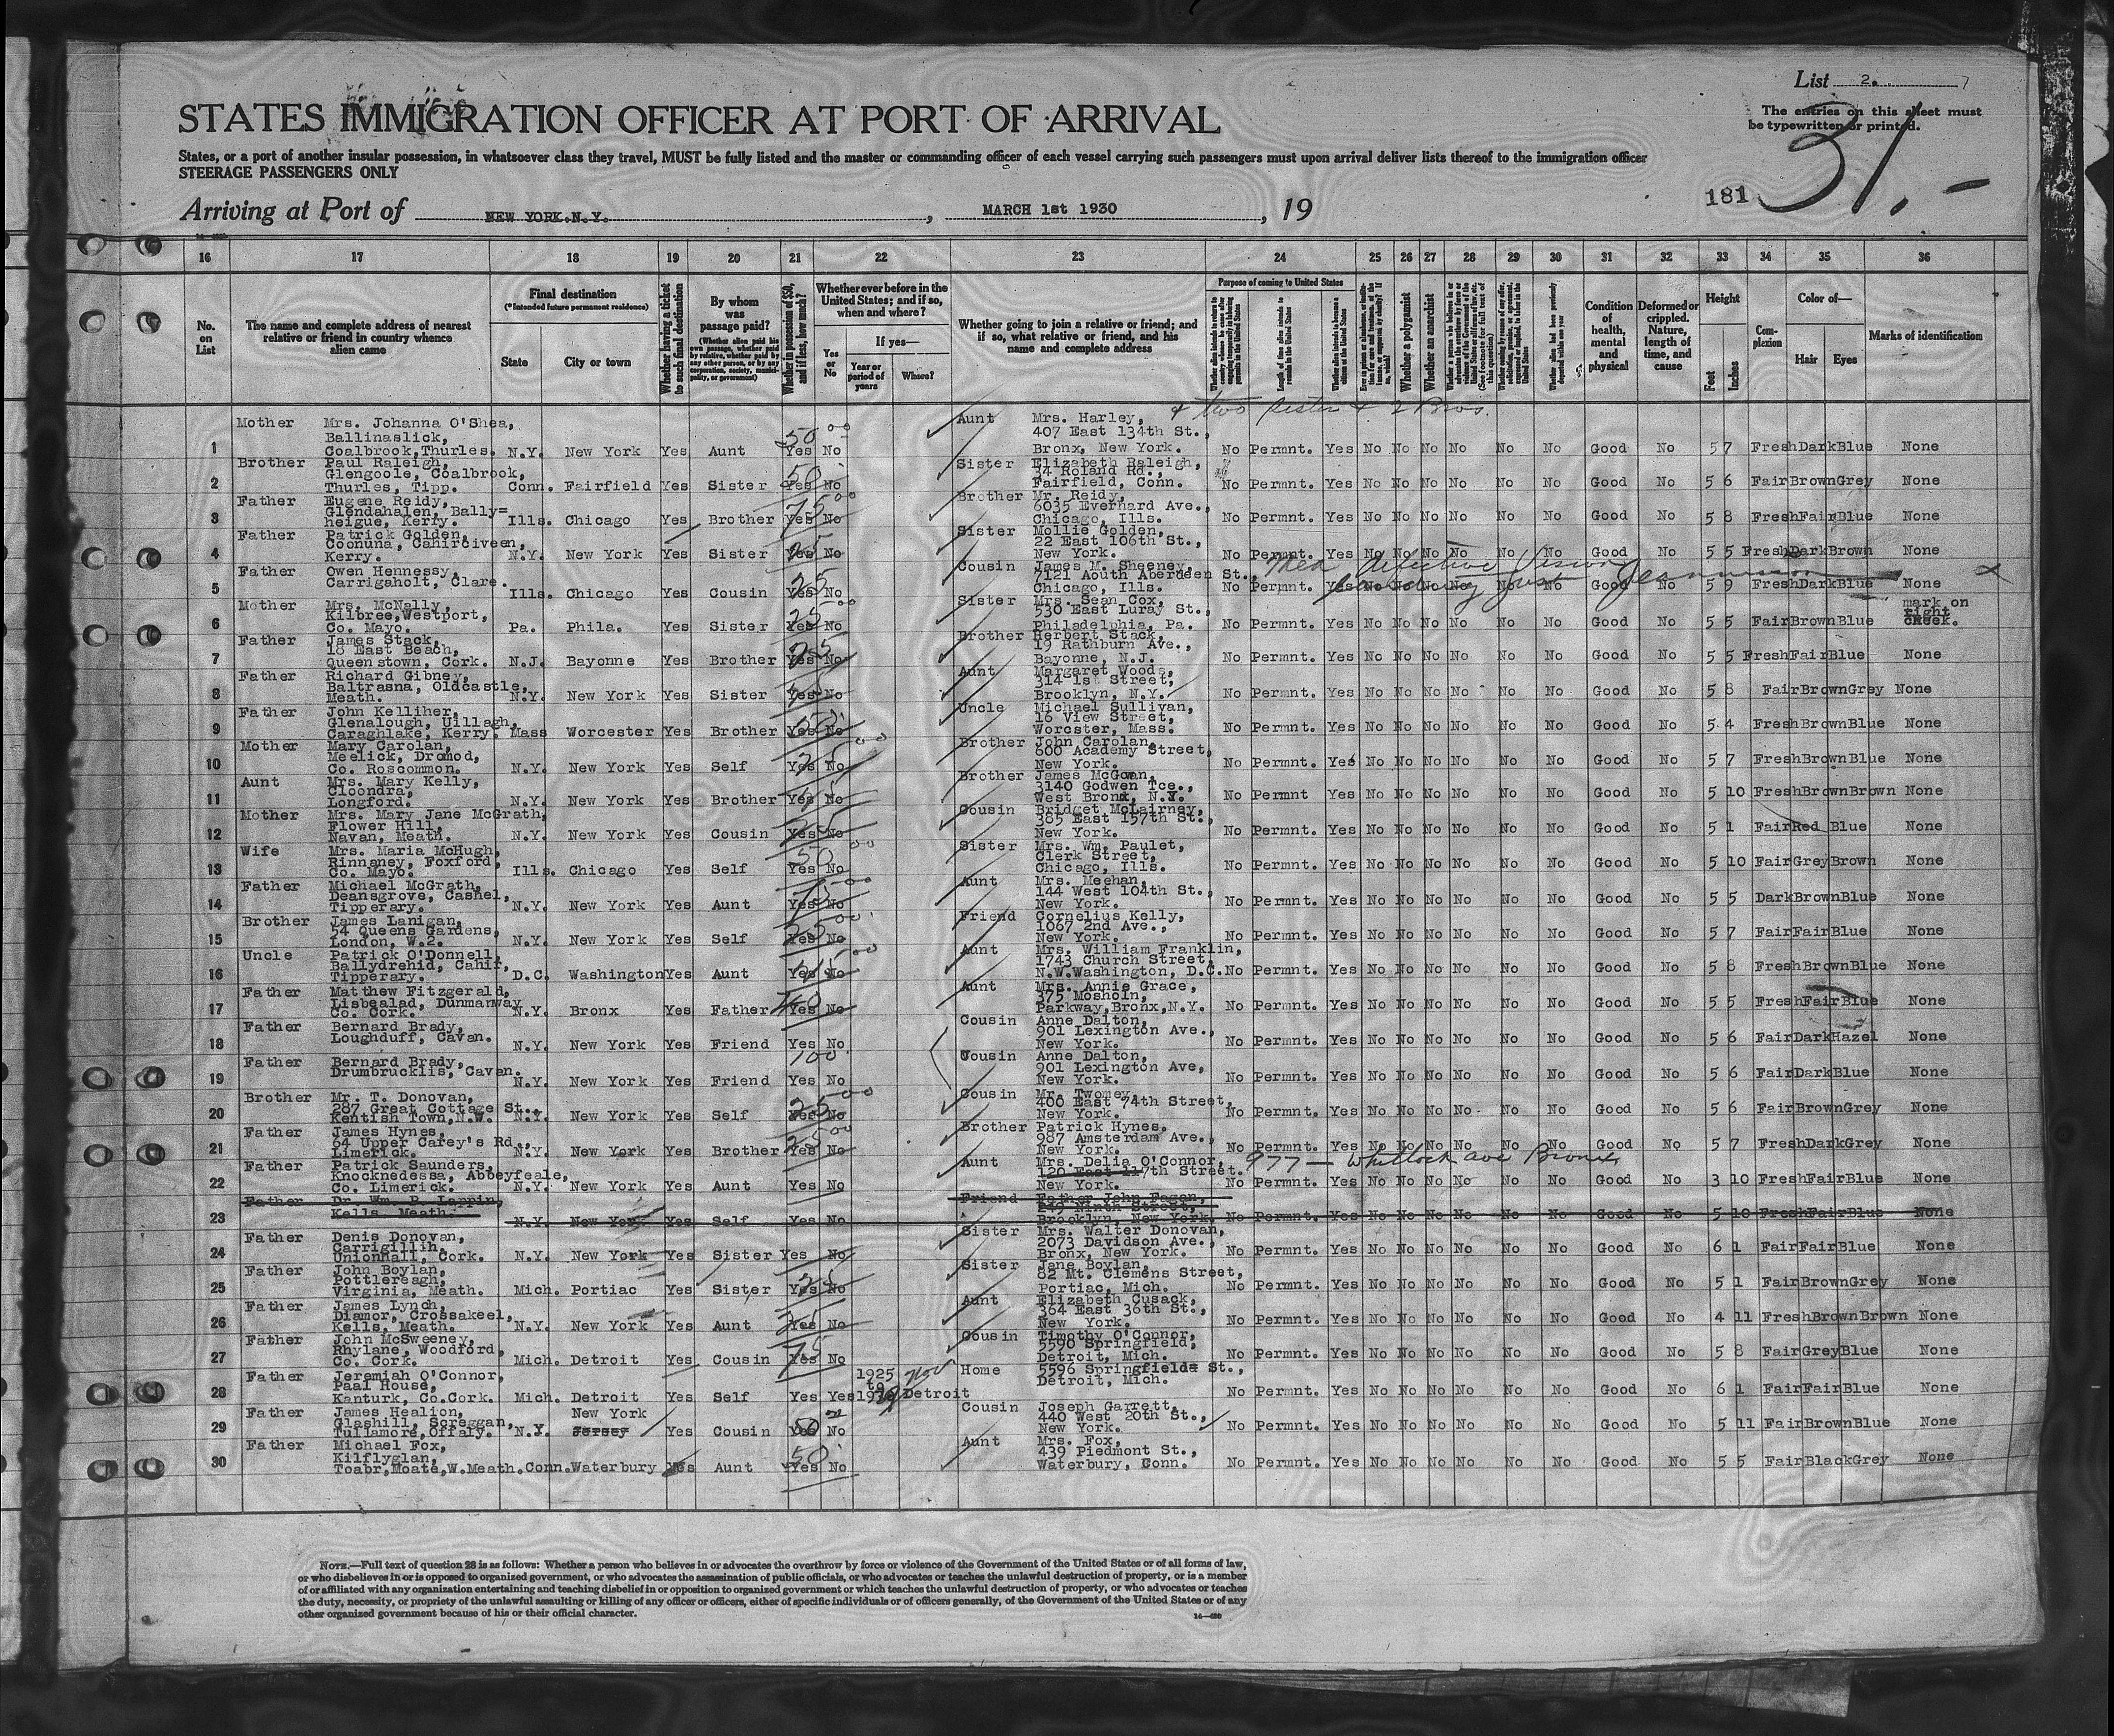 List 2.
The entries on this sheet must
be typewritten or printed.
STATES IMMIGRATION OFFICER AT PORT OF ARRIVAL
States, or a port of another insular possession, in whatsoever class they travel, MUST be fully listed and the master or commanding officer of each vessel carrying such passengers must upon arrival deliver lists thereof to the immigration officer
STEERAGE PASSENGERS ONLY
181 31.-
Arriving at Port of NEW YORK.N.Y. , MARCH 1st 1930 , 19
16 17 18 19 20 21 22 23 24 25 26 27 28 29 30 31 32 33 34 35 36
No. on List
The name and complete address of nearest relative or friend in country whence alien came
Final destination
(*Intended future permanent residence)
State
City or town
Whether having a ticket to such final destination
By whom was passage paid?
(Whether alien paid his own passage, whether paid by relative, whether paid by any other person, or by any corporation, society, municipality, or government)
Whether in possession of $50, and if less, how much?
Whether ever before in the United States; and if so, when and where?
Yes or No
If yes—
Year or period of years
Where?
Whether going to join a relative or friend; and if so, what relative or friend, and his name and complete address
Purpose of coming to United States
Whether a polygamist
Whether an anarchist
Condition of health, mental and physical
Deformed or crippled. Nature, length of time, and cause
Height
Feet
Inches
Com-plexion
Color of—
Hair
Eyes
Marks of identification
& two sisters & 2 Bros.
1 Mother Mrs. Johanna O'Shea, Ballinaslick, Coalbrook, Thurles. N.Y. New York Yes Aunt 50 Yes No Aunt Mrs. Harley, 407 East 134th St., Bronx, New York. No Permnt. Yes No No No No No No Good No 5 7 Fresh Dark Blue None
2 Brother Paul Raleigh, Glengoole, Coalbrook, Thurles, Tipp. Conn. Fairfield Yes Sister 50 Yes No Sister Elizabeth Raleigh, 34 Roland Rd., Fairfield, Conn. No Permnt. Yes No No No No No No Good No 5 6 Fair Brown Grey None
3 Father Eugene Reidy, Glendahalen, Bally=heigue, Kerry. Ills. Chicago Yes Brother 75 Yes No Brother Mr. Reidy, 6035 Evernard Ave., Chicago, Ills. No Permnt. Yes No No No No No No Good No 5 8 Fresh Fair Blue None
4 Father Patrick Golden, Coonuna, Cahirciveen, Kerry. N.Y. New York Yes Sister 25 Yes No Sister Mollie Golden, 22 East 106th St., New York. No Permnt. Yes No No No No No No Good No 5 5 Fresh Dark Brown None
5 Father Owen Hennessy, Carrigaholt, Clare. Ills. Chicago Yes Cousin 25 Yes No Cousin James M. Sheeney, 7121 Aouth Aberdeen St., Chicago, Ills. Med Defective Vision No Permnt. Yes No No No No No No Good No 5 9 Fresh Dark Blue None
6 Mother Mrs. McNally, Kilbree, Westport, Co. Mayo. Pa. Phila. Yes Sister 25 Yes No Sister Mrs. Sean Cox, 530 East Luray St., Philadelphia, Pa. No Permnt. Yes No No No No No No Good No 5 5 Fair Brown Blue mark on right cheek.
7 Father James Stack, 18 East Beach, Queenstown, Cork. N.J. Bayonne Yes Brother 25 Yes No Brother Herbert Stack, 19 Rathburn Ave., Bayonne, N.J. No Permnt. Yes No No No No No No Good No 5 5 Fresh Fair Blue None
8 Father Richard Gibney, Baltrasna, Oldcastle, Meath. N.Y. New York Yes Sister Yes No Aunt Margaret Woods, 314 1st Street, Brooklyn, N.Y. No Permnt. Yes No No No No No No Good No 5 8 Fair Brown Grey None
9 Father John Kelliher, Glenalough, Uillagh, Caraghlake, Kerry. Mass Worcester Yes Brother Yes No Uncle Michael Sullivan, 16 View Street, Worcster, Mass. No Permnt. Yes No No No No No No Good No 5 4 Fresh Brown Blue None
10 Mother Mary Carolan, Meelick, Dromod, Co. Roscommon. N.Y. New York Yes Self Yes No Brother John Carolan, 600 Academy Street, New York. No Permnt. Yes No No No No No No Good No 5 7 Fresh Brown Blue None
11 Aunt Mrs. Mary Kelly, Cloondra, Longford. N.Y. New York Yes Brother Yes No Brother James McGowan, 3140 Godwen Tce., West Bronx, N.Y. No Permnt Yes No No No No No No Good No 5 10 Fresh Brown Brown None
12 Mother Mrs. Mary Jane McGrath, Flower Hill, Navan, Meath. N.Y. New York Yes Cousin 25 Yes No Cousin Bridget McLairney, 385 East 157th St., New York. No Permnt. Yes No No No No No No Good No 5 1 Fair Red Blue None
13 Wife Mrs. Maria McHugh, Rinnaney, Foxford, Co. Mayo. Ills. Chicago Yes Self 50 Yes No Sister Mrs. Wm. Paulet, Clerk Street, Chicago, Ills. No Permnt. Yes No No No No No No Good No 5 10 Fair Grey Brown None
14 Father Michael McGrath, Deansgrove, Cashel, Tipperary. N.Y. New York Yes Aunt 75 Yes No Aunt Mrs. Meehan, 144 West 104th St., New York. No Permnt. Yes No No No No No No Good No 5 5 Dark Brown Blue None
15 Brother James Lanigan, 54 Queens Gardens, London, W.2. N.Y. New York Yes Self 25 Yes No Friend Cornelius Kelly, 1067 2nd Ave., New York. No Permnt. Yes No No No No No No Good No 5 7 Fair Fair Blue None
16 Uncle Patrick O'Donnell, Ballydrehid, Cahir, Tipperary. D.C. Washington Yes Aunt Yes No Aunt Mrs. William Franklin, 1743 Church Street, N.W. Washington, D.C. No Permnt. Yes No No No No No No Good No 5 8 Fresh Brown Blue None
17 Father Matthew Fitzgerald, Lisbealad, Dunmanway Co. Cork. N.Y. Bronx Yes Father Yes No Aunt Mrs. Annie Grace, 375 Mosholn, Parkway, Bronx, N.Y. No Permnt. Yes No No No No No No Good No 5 5 Fresh Fair Blue None
18 Father Bernard Brady, Loughduff, Cavan. N.Y. New York Yes Friend Yes No Cousin Anne Dalton, 901 Lexington Ave., New York. No Permnt. Yes No No No No No No Good No 5 6 Fair Dark Hazel None
19 Father Bernard Brady, Drumbrucklis, Cavan. N.Y. New York Yes Friend 100 Yes No Cousin Anne Dalton, 901 Lexington Ave, New York. No Permnt. Yes No No No No No No Good No 5 6 Fair Dark Blue None
20 Brother Mr. T. Donovan, 287 Great Cottage St., Kentish Town, N.W. N.Y. New York Yes Self 25 Yes No Cousin Mr. Twomey, 400 East 74th Street, New York. No Permnt. Yes No No No No No No Good No 5 6 Fair Brown Grey None
21 Father James Hynes, 64 Upper Carey's Rd., Limerick. N.Y. New York Yes Brother 25 Yes No Brother Patrick Hynes. 987 Amsterdam Ave., New York. No Permnt. Yes No No No No No No Good No 5 7 Fresh Dark Grey None
22 Father Patrick Saunders, Knocknedessa, Abbeyfeale, Co. Limerick. N.Y. New York Yes Aunt Yes No Aunt Mrs. Delia O'Connor, 120 East 117th Street. New York. 977 - Whitlock ave Bronx No Permnt. Yes No No No No No No Good No 3 10 Fresh Fair Blue None
23 Father Dr. Wm. P. Lappin, Kells, Meath. N.Y. New York Yes Self Yes No Friend Father John Fagan, 249 Ninth Street, Brooklyn, New York. No Permnt. Yes No No No No No No Good No 5 10 Fresh Fair Blue None
24 Father Denis Donovan, Carrigillin, Unionhall, Cork. N.Y. New York Yes Sister Yes No Sister Mrs. Walter Donovan, 2073 Davidson Ave., Bronx, New York. No Permnt. Yes No No No No No No Good No 6 1 Fair Fair Blue None
25 Father John Boylan, Pottlereagh, Virginia, Meath. Mich. Portiac Yes Sister 25 Yes No Sister Jane Boylan, 82 Mt. Clemens Street, Portiac, Mich. No Permnt. Yes No No No No No No Good No 5 1 Fair Brown Grey None
26 Father James Lynch, Diamor, Crossakeel, Kells, Meath. N.Y. New York Yes Aunt Yes No Aunt Elizabeth Cusack, 364 East 36th St., New York. No Permnt. Yes No No No No No No Good No 4 11 Fresh Brown Brown None
27 Father John McSweeney, Rhylane, Woodford, Co. Cork. Mich. Detroit Yes Cousin 75 Yes No Cousin Timothy O'Connor, 5590 Springfield, Detroit, Mich. No Permnt. Yes No No No No No No Good No 5 8 Fair Grey Blue None
28 Father Jeremiah O'Connor, Paal House, Kanturk, Co. Cork. Mich. Detroit Yes Self Yes Yes 1925 to Detroit Home 5596 Springfield St., Detroit, Mich. No Permnt. Yes No No No No No No Good No 6 1 Fair Fair Blue None
29 Father James Healion, Glashill, Screggan, Tullamore, Offaly. N.Y. New York Jersey Yes Cousin 50 Yes No Cousin Joseph Garrett, 440 West 20th St., New York. No Permnt. Yes No No No No No No Good No 5 11 Fair Brown Blue None
30 Father Michael Fox, Kilflyglan, Toabr, Moate, W. Meath. Conn. Waterbury Yes Aunt 50 Yes No Aunt Mrs. Fox, 439 Piedmont St., Waterbury, Conn. No Permnt. Yes No No No No No No Good No 5 5 Fair Black Grey None
NOTE.—Full text of question 28 is as follows: Whether a person who believes in or advocates the overthrow by force or violence of the Government of the United States or of all forms of law,
or who disbelieves in or is opposed to organized government, or who advocates the assassination of public officials, or who advocates or teaches the unlawful destruction of property, or is a member
of or affiliated with any organization entertaining and teaching disbelief in or opposition to organized government or which teaches the unlawful destruction of property, or who advocates or teaches
the duty, necessity, or propriety of the unlawful assaulting or killing of any officer or officers, either of specific individuals or of officers generally, of the Government of the United States or of any
other organized government because of his or their official character.